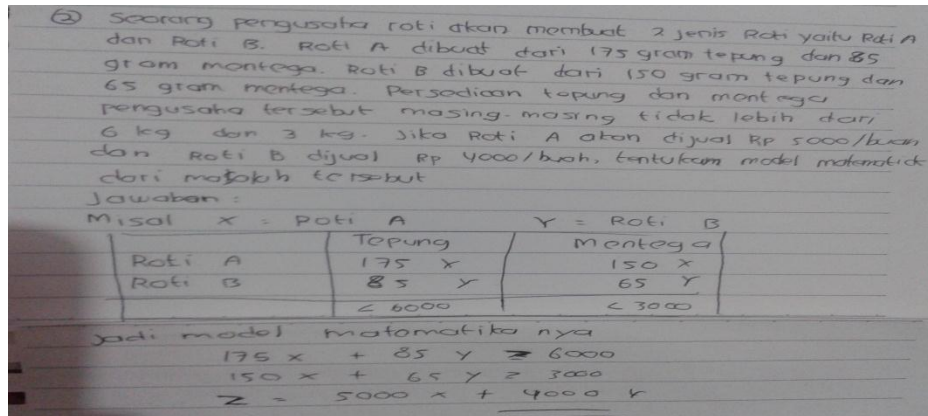 ② Seorang pengusaha roti akan membuat 2 jenis Roti yaitu Roti A
dan Roti B. Roti A dibuat dari 175 gram tepung dan 85
gram mentega. Roti B dibuat dari 150 gram tepung dan
65 gram mentega. Persediaan tepung dan mentega
pengusaha tersebut masing-masing tidak lebih dari
6 kg dan 3 kg. Jika Roti A akan dijual Rp 5000/buah
dan Roti B dijual Rp 4000/buah, tentukan model matematick
dari masalah tersebut
Jawaban :
Misal X = Roti A Y = Roti B
Tepung Mentega
Roti A 175 X 150 X
Roti B 85 Y 65 Y
< 6000 < 3000
Jadi model matematika nya
175 x + 85 y ≥ 6000
150 x + 65 y ≥ 3000
Z = 5000 x + 4000 Y